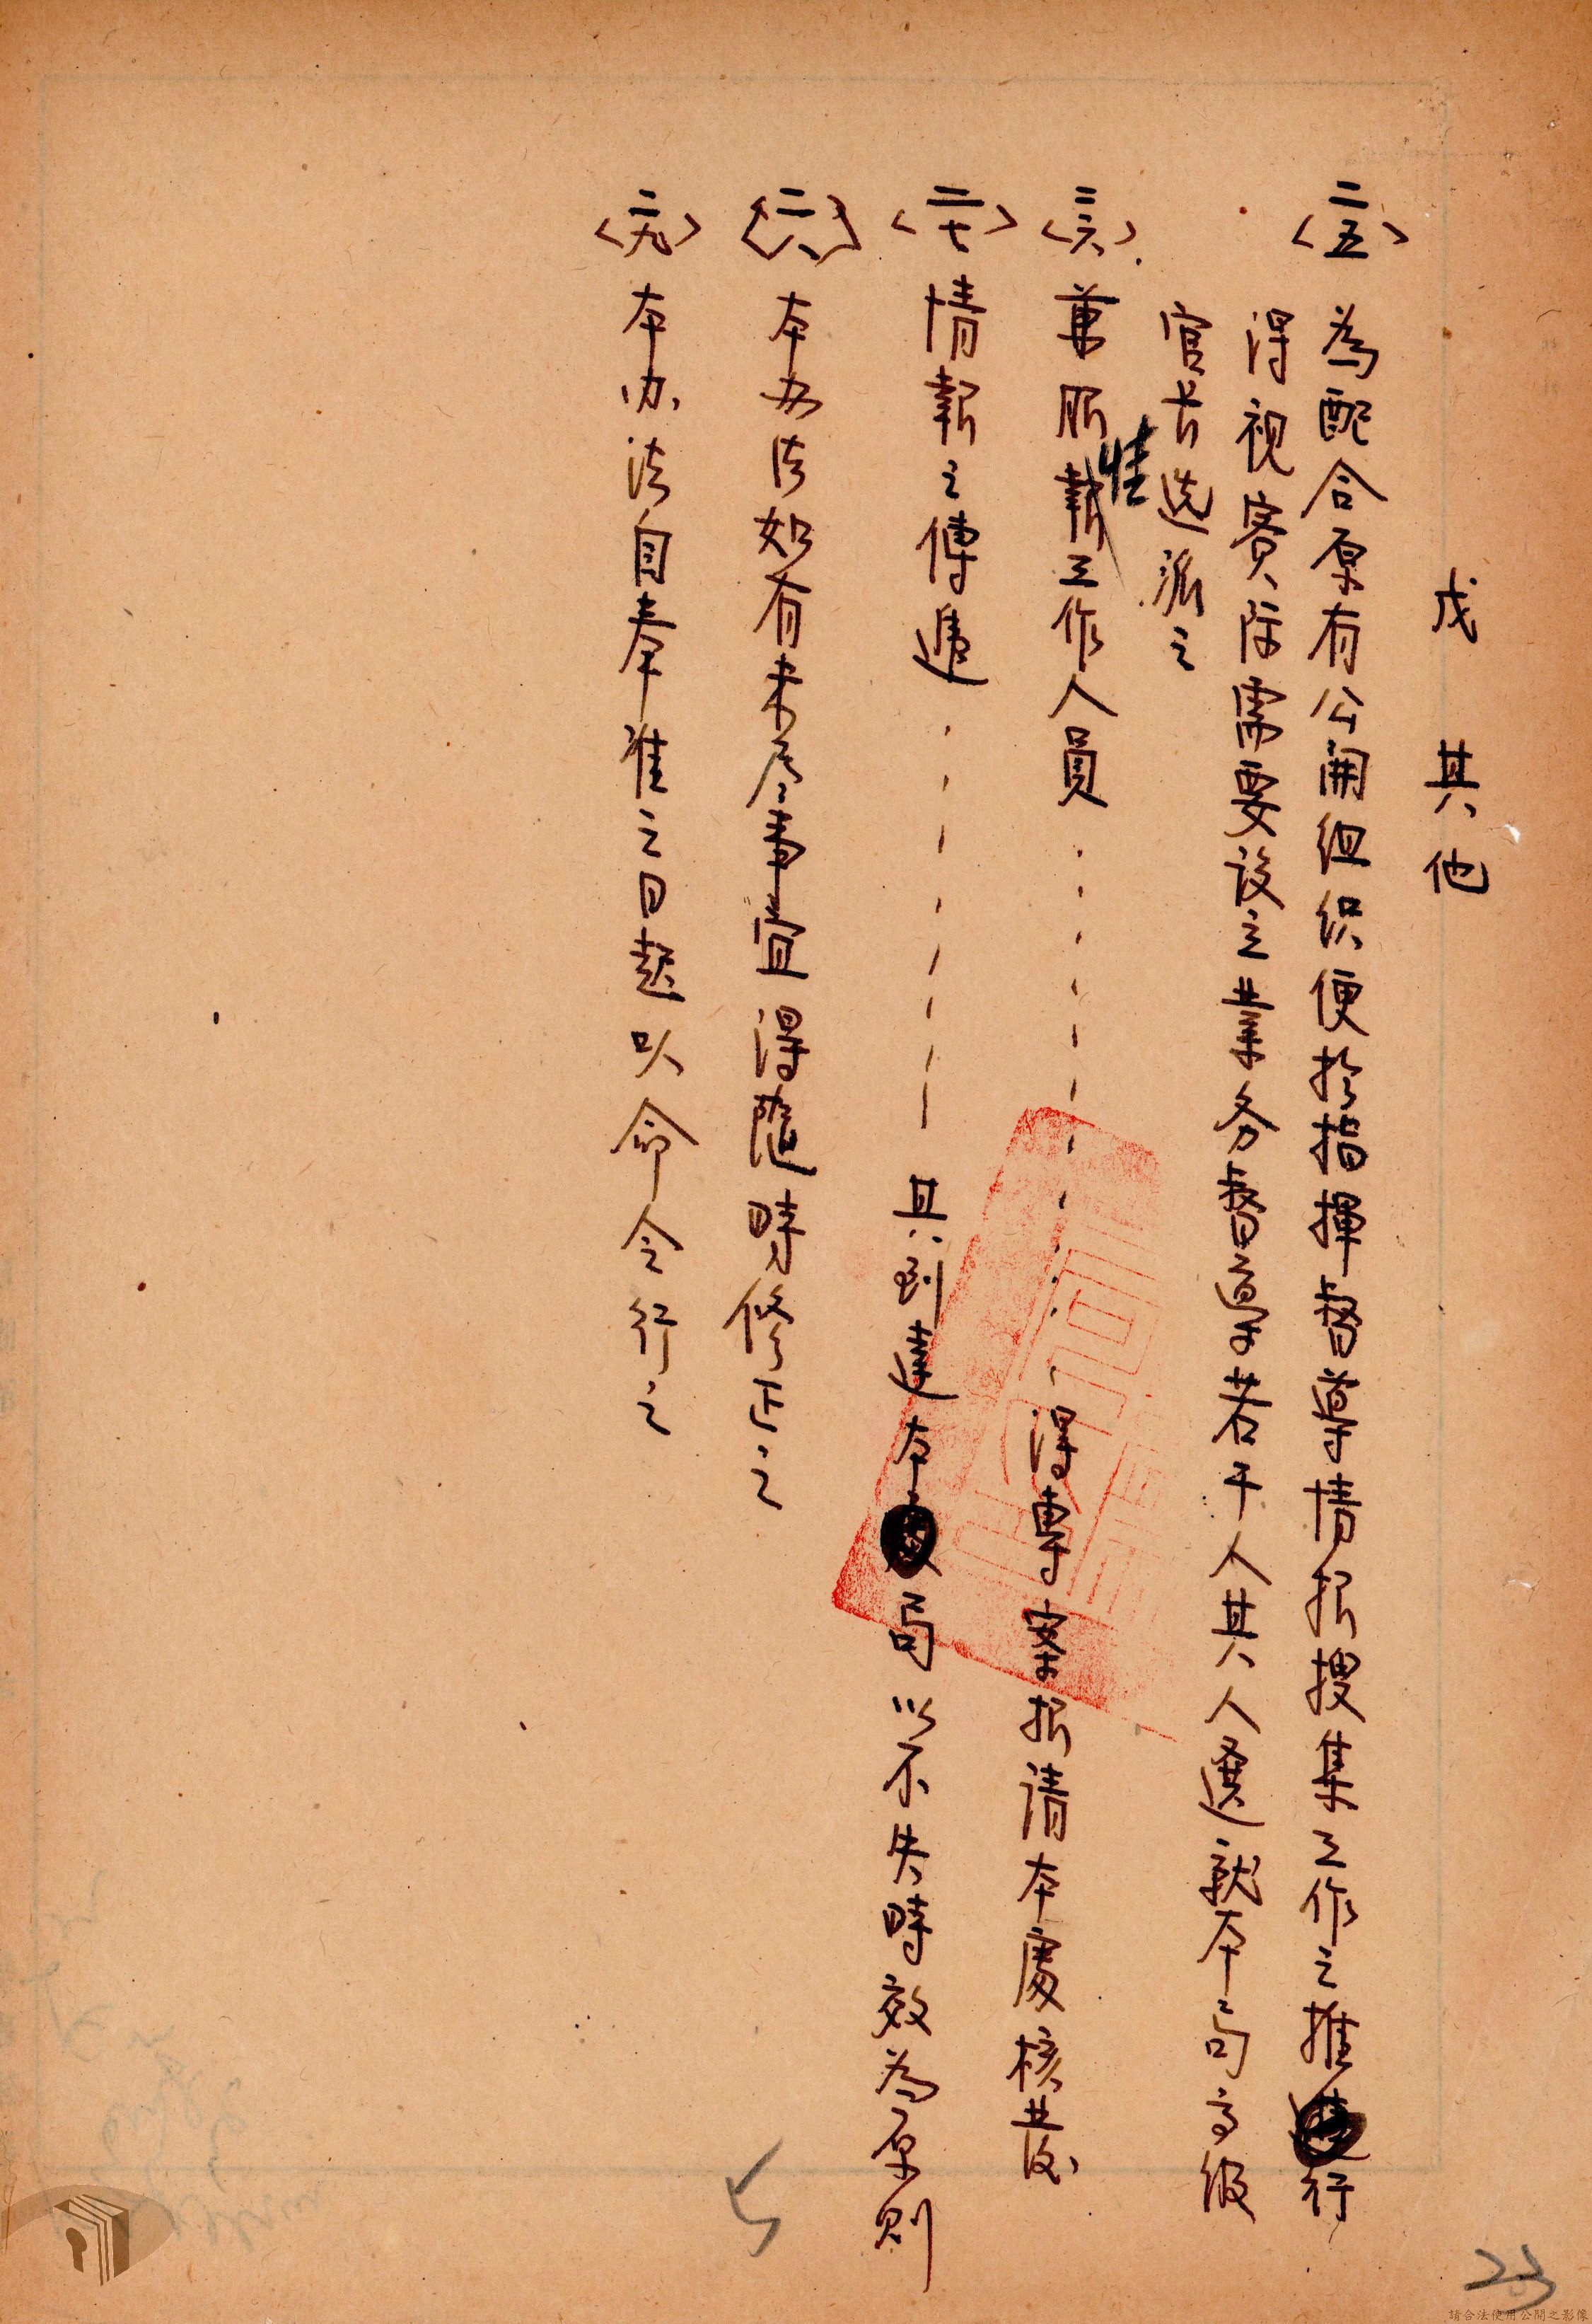 戊 其他
〈二五〉 為配合原有公開組织便於指揮督導情报搜集工作之推行
得視實际需要设立業务督導若干人其人選就本局高級
官长选派之
〈二六〉 兼服情報工作人員．．．．．．．．．．得專案报請本處核發
〈二七〉 情報之傳遞．．．．．．．其到達本局以不失時效為原則
〈二八〉 本办法如有未尽事宜得隨時修正之
〈二九〉 本办法自奉准之日起以命令行之
七
23
請合法使用公開之影像